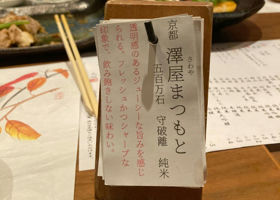 京都
澤屋まつもと
さわや
五百万石 守破離 純米
透明感のあるジューシーな旨みを感じ
られる。フレッシュかつシャープな
印象で、飲み飽きしない味わい。